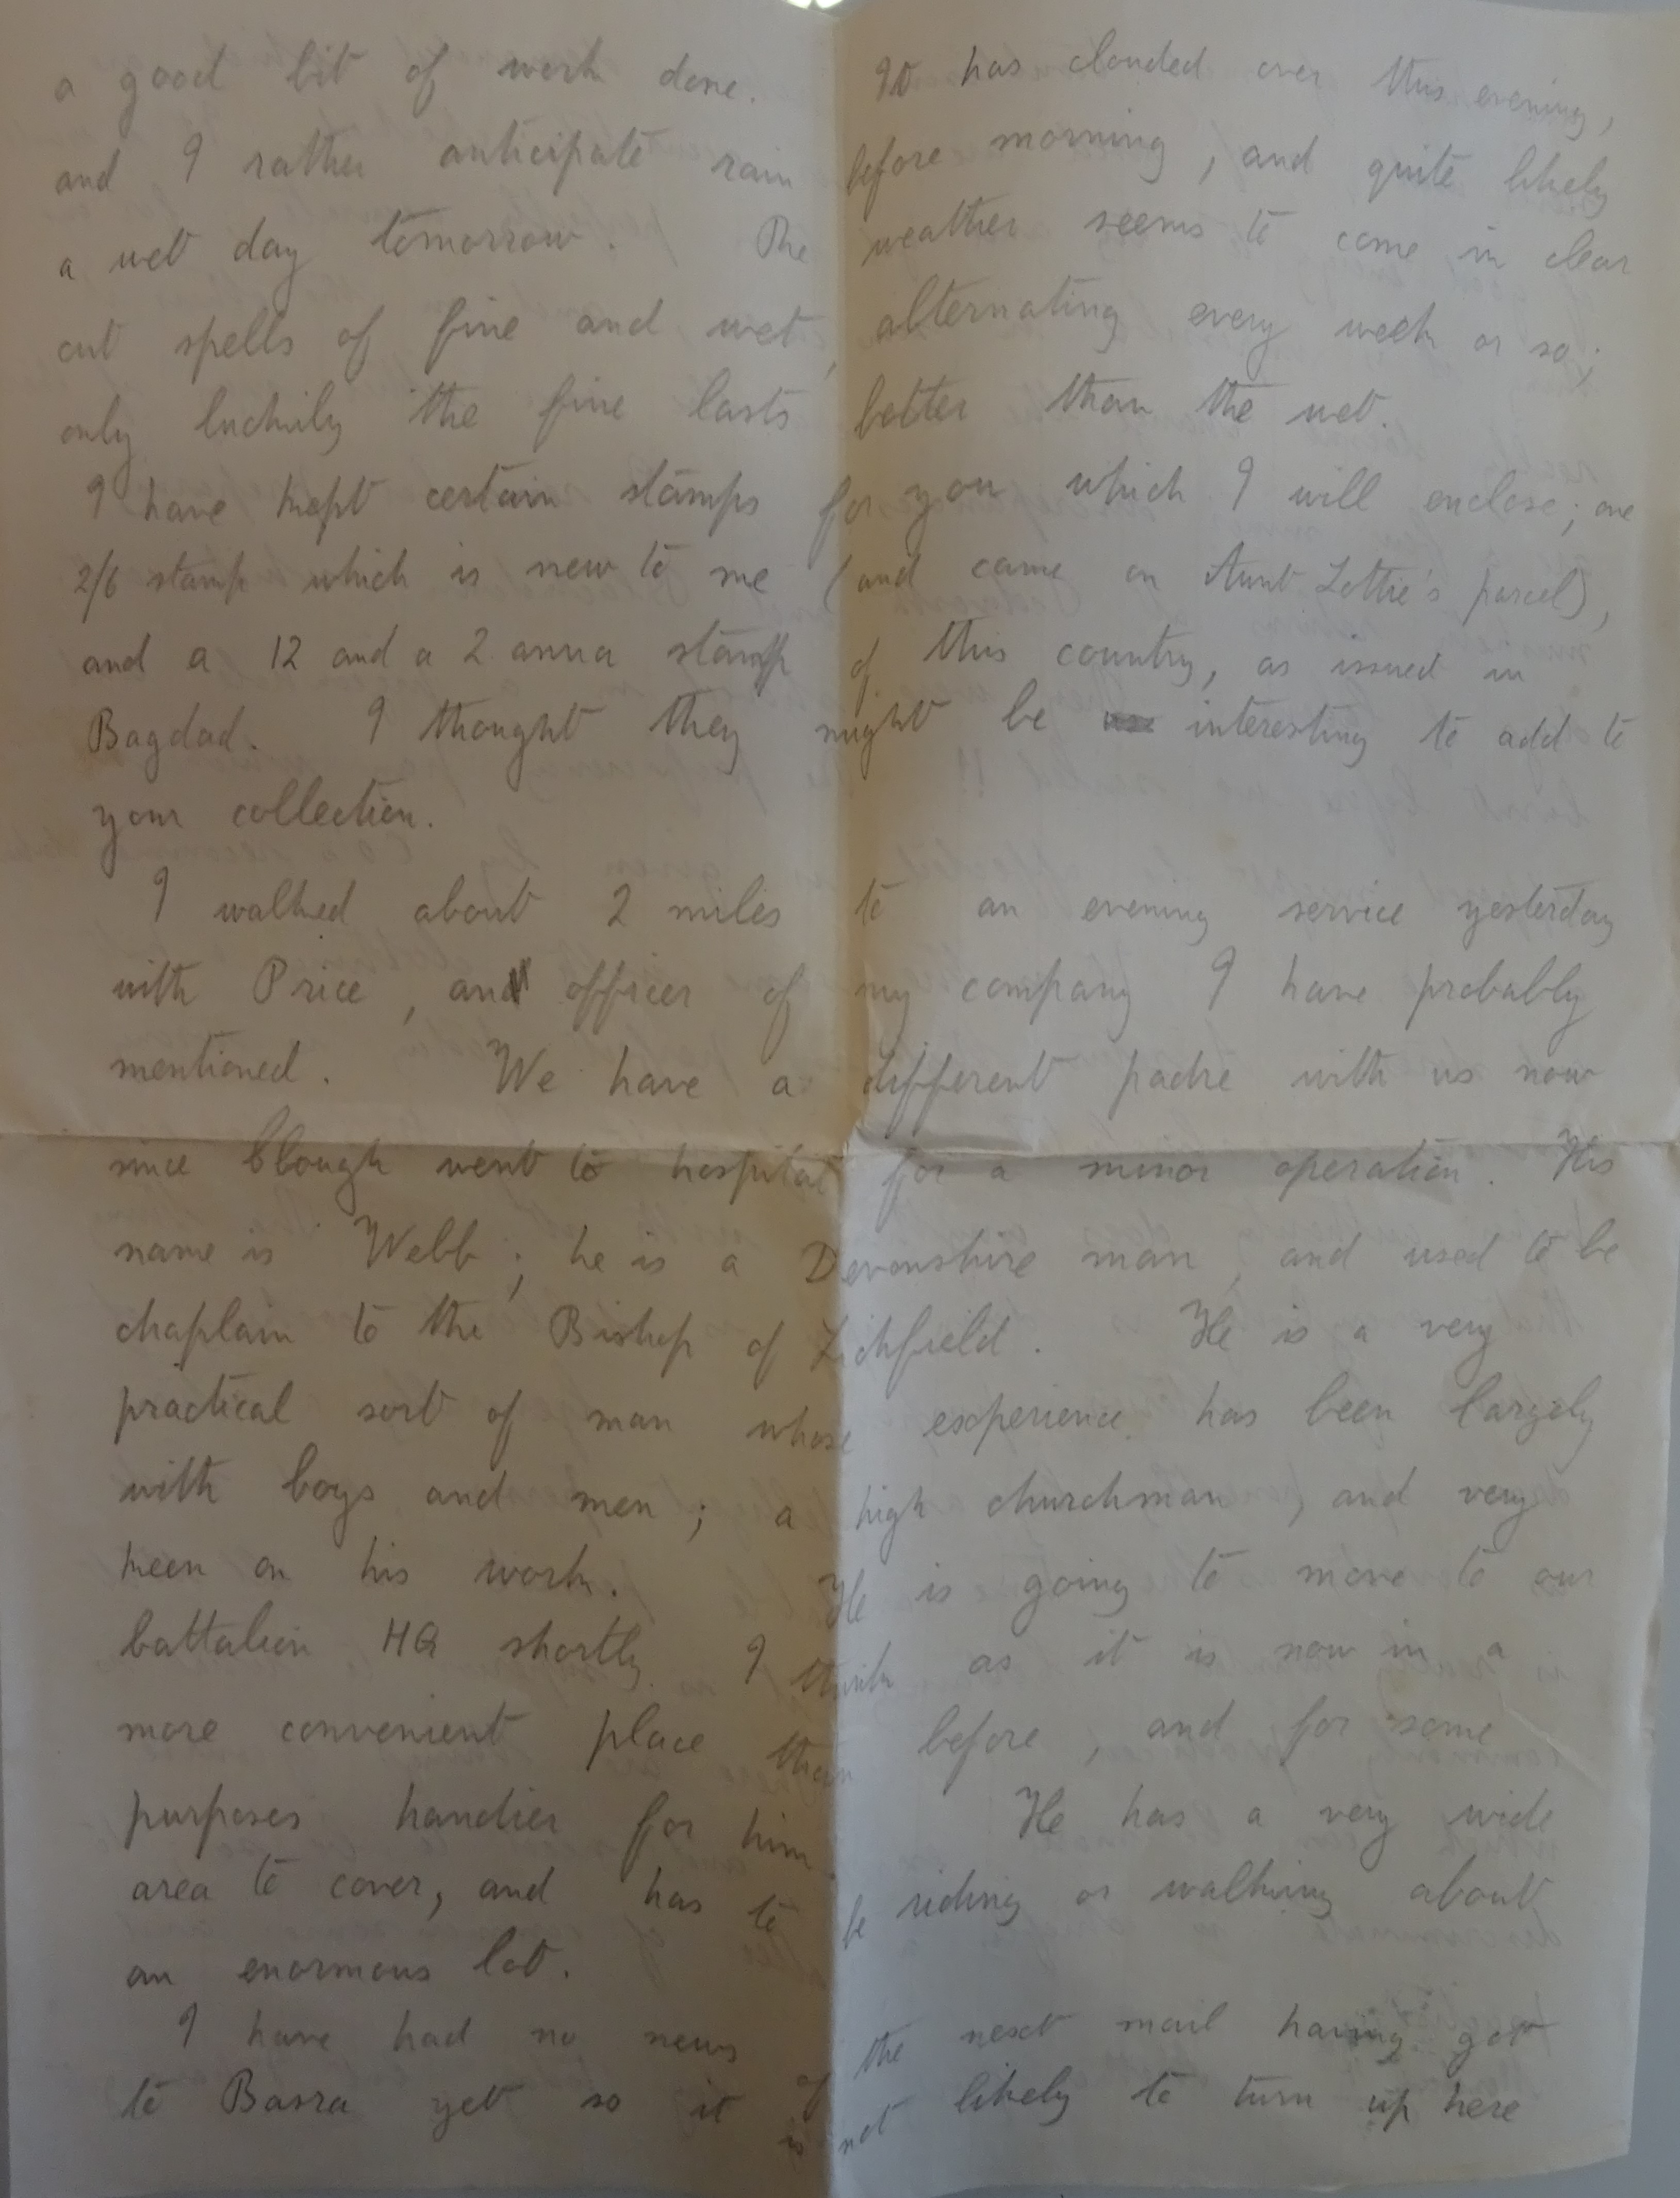 a good bit of work done. It has clouded over this evening,
and I rather anticipate rain before morning, and quite likely
a wet day tomorrow. The weather seems to come in clear
cut spells of fine and wet, alternating every week or so;
only luckily the fine lasts better than the wet.
I have kept certain stamps for you which I will enclose; one
2/6 stamp which is new to me (and came on Aunt Lettie's parcel),
and a 12 and a 2 anna stamp of this country, as issued in
Bagdad. I thought they might be interesting to add to
your collection.
I walked about 2 miles to an evening service yesterday
with Price, an officer of my company I have probably
mentioned. We have a different padre with us now
since Clough went to hospital for a minor operation. His
name is Webb; he is a Devonshire man, and used to be
chaplain to the Bishop of Lichfield. He is a very
practical sort of man whose experience has been largely
with boys and men; a high churchman, and very
keen on his work. He is going to move to our
battalion HQ shortly I think as it is now in a
more convenient place than before, and for some
purposes handier for him. He has a very wide
area to cover, and has to be riding or walking about
an enormous lot.
I have had no news of the next mail having got
to Basra yet so it is not likely to turn up here